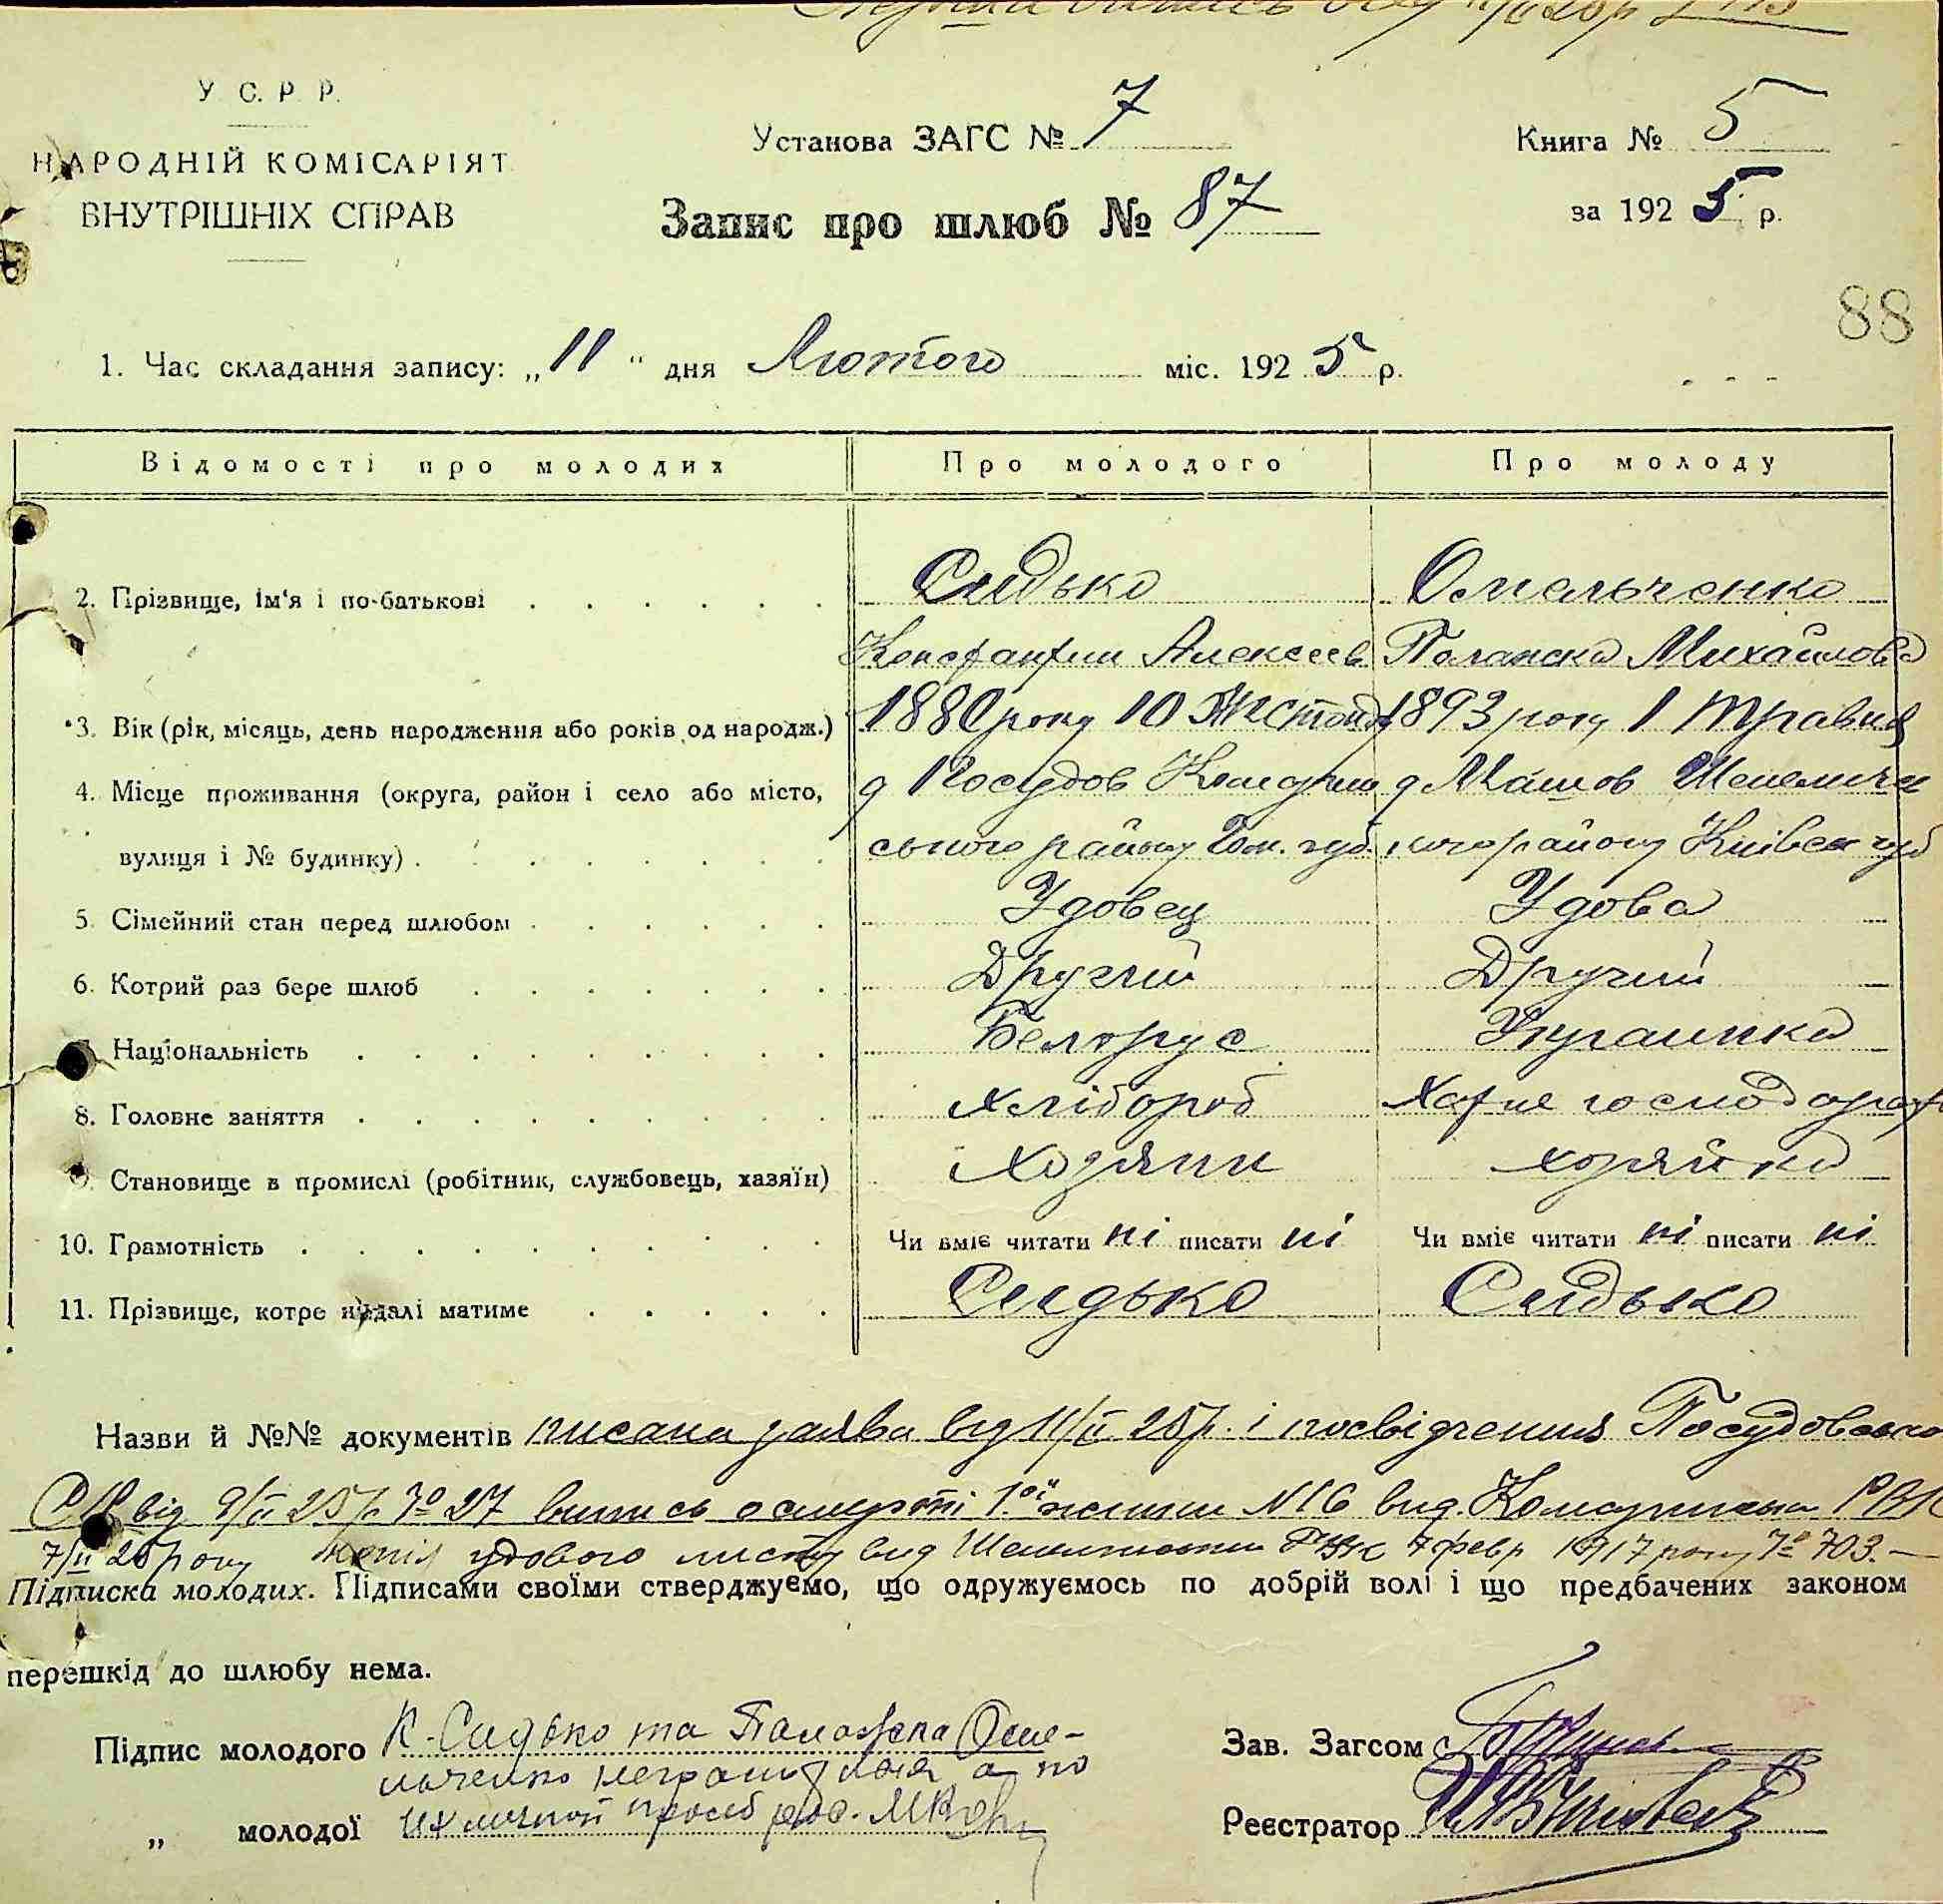 У С. Р. Р.
НАРОДНІЙ КОМІСАРІЯТ
ВНУТРІШНІХ СПРАВ
Установа ЗАГС № 7
Запис про шлюб № 87
Книга № 5
за 1925 р.
88
1. Час складання запису: „11“ дня Лютого міс. 1925 р.
Відомості про молодих Про молодого Про молоду
2. Прізвище, ім'я і по-батькові Сидько Омельченко
Константин Алексеев Михайлова
3. Вік (рік, місяць, день народження або років од народж.) 1880 року 10 Листопад 1893 року 1 Травня
4. Місце проживання (округа, район і село або місто, д Посудов Комарин д Машов Шепеличи
вулиця і № будинку) ського району Гом. губ. району Київск губ
5. Сімейний стан перед шлюбом Удовец Удова
6. Котрий раз бере шлюб Другий Другий
Національність Белорус Украинка
8. Головне заняття Хлібороб Хатне господарст
Становище в промислі (робітник, службовець, хазяїн) Хозяин хозяйка
10. Грамотність Чи вміє читати ні писати ні Чи вміє читати ні писати ні
11. Прізвище, котре надалі матиме Сидько Сидько
Назви й №№ документів писана заява від 11/II 25 р. і посвідчення Посудовсько
від 9/II 25 р № 27 випись о смерті 1ої жинки N16 вид. РВК
7/II 25 року копія удового листу вид 7 февр 1917 року № 703.—
Підписка молодих. Підписами своїми стверджуємо, що одружуємось по добрій волі і що предбачених законом
перешкід до шлюбу нема.
Підпис молодого К. Сидько та Оме-
льченко а по
„ молодої их личной
Зав. Загсом
Реєстратор